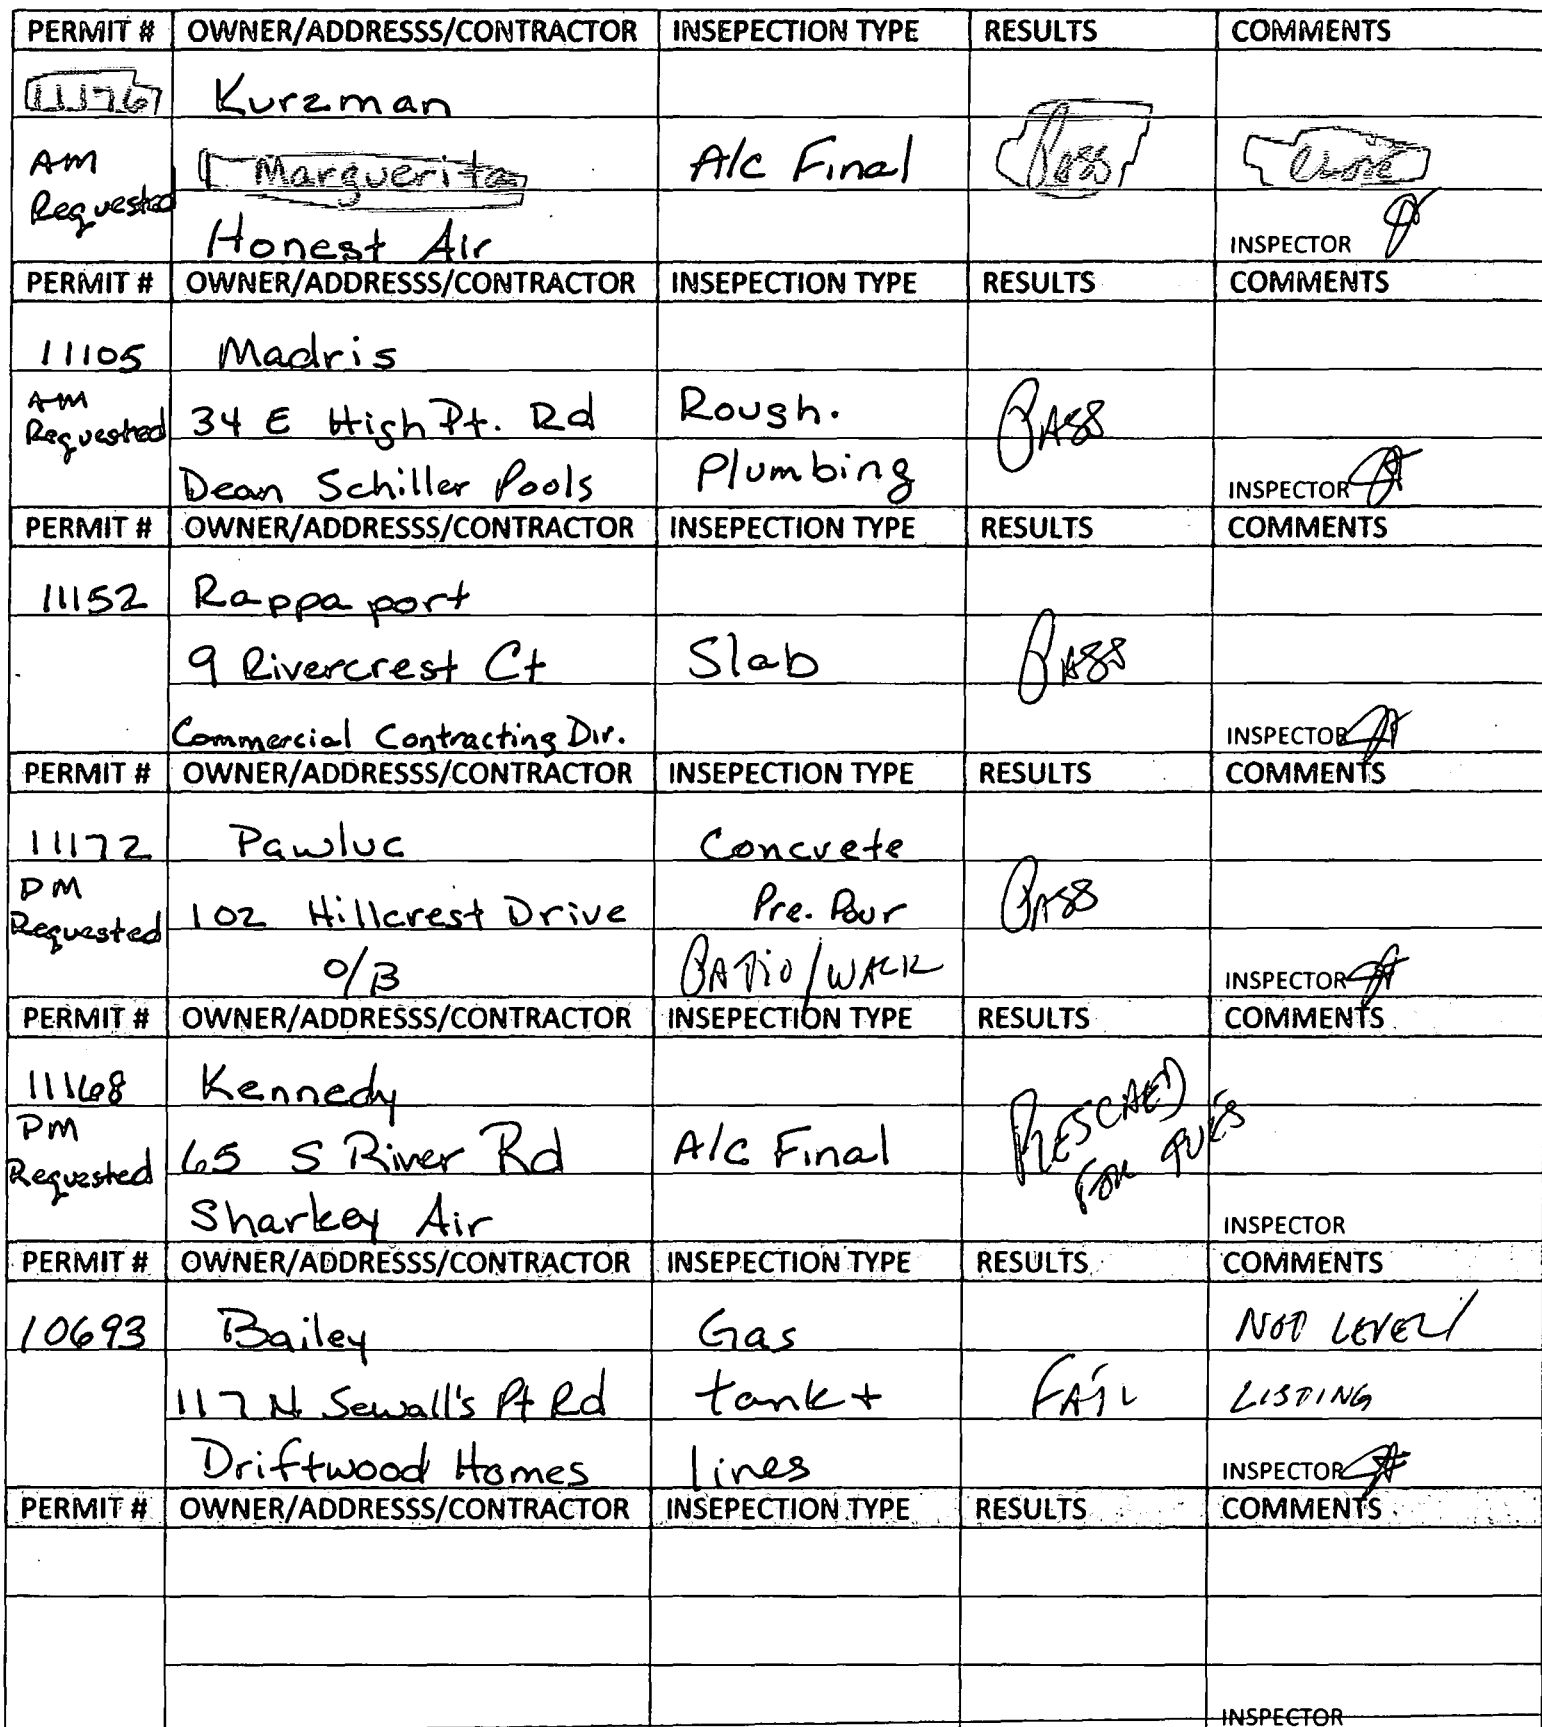 PERMIT # OWNER/ADDRESSS/CONTRACTOR INSEPECTION TYPE RESULTS COMMENTS
11176 Kurzman
AM Requested Marguerita A/c Final Pass Close
Honest Air INSPECTOR
PERMIT # OWNER/ADDRESSS/CONTRACTOR INSEPECTION TYPE RESULTS COMMENTS
11105 Madris
AM Requested 34 E High Pt. Rd Rough. PASS
Dean Schiller Pools Plumbing INSPECTOR
PERMIT # OWNER/ADDRESSS/CONTRACTOR INSEPECTION TYPE RESULTS COMMENTS
11152 Rappaport
9 Rivercrest Ct Slab PASS
Commercial Contracting Div. INSPECTOR
PERMIT # OWNER/ADDRESSS/CONTRACTOR INSEPECTION TYPE RESULTS COMMENTS
11172 Pawluc Concrete
PM Requested 102 Hillcrest Drive Pre. Pour PASS
O/B PATIO/WALK INSPECTOR
PERMIT # OWNER/ADDRESSS/CONTRACTOR INSEPECTION TYPE RESULTS COMMENTS
11168 Kennedy
PM Requested 65 S River Rd A/c Final RESCHED FOR TUES
Sharkey Air INSPECTOR
PERMIT # OWNER/ADDRESSS/CONTRACTOR INSEPECTION TYPE RESULTS COMMENTS
10693 Bailey Gas NOT LEVEL/
117 N Sewall's Pt Rd tank + FAIL LISTING
Driftwood Homes lines INSPECTOR
PERMIT # OWNER/ADDRESSS/CONTRACTOR INSEPECTION TYPE RESULTS COMMENTS
INSPECTOR